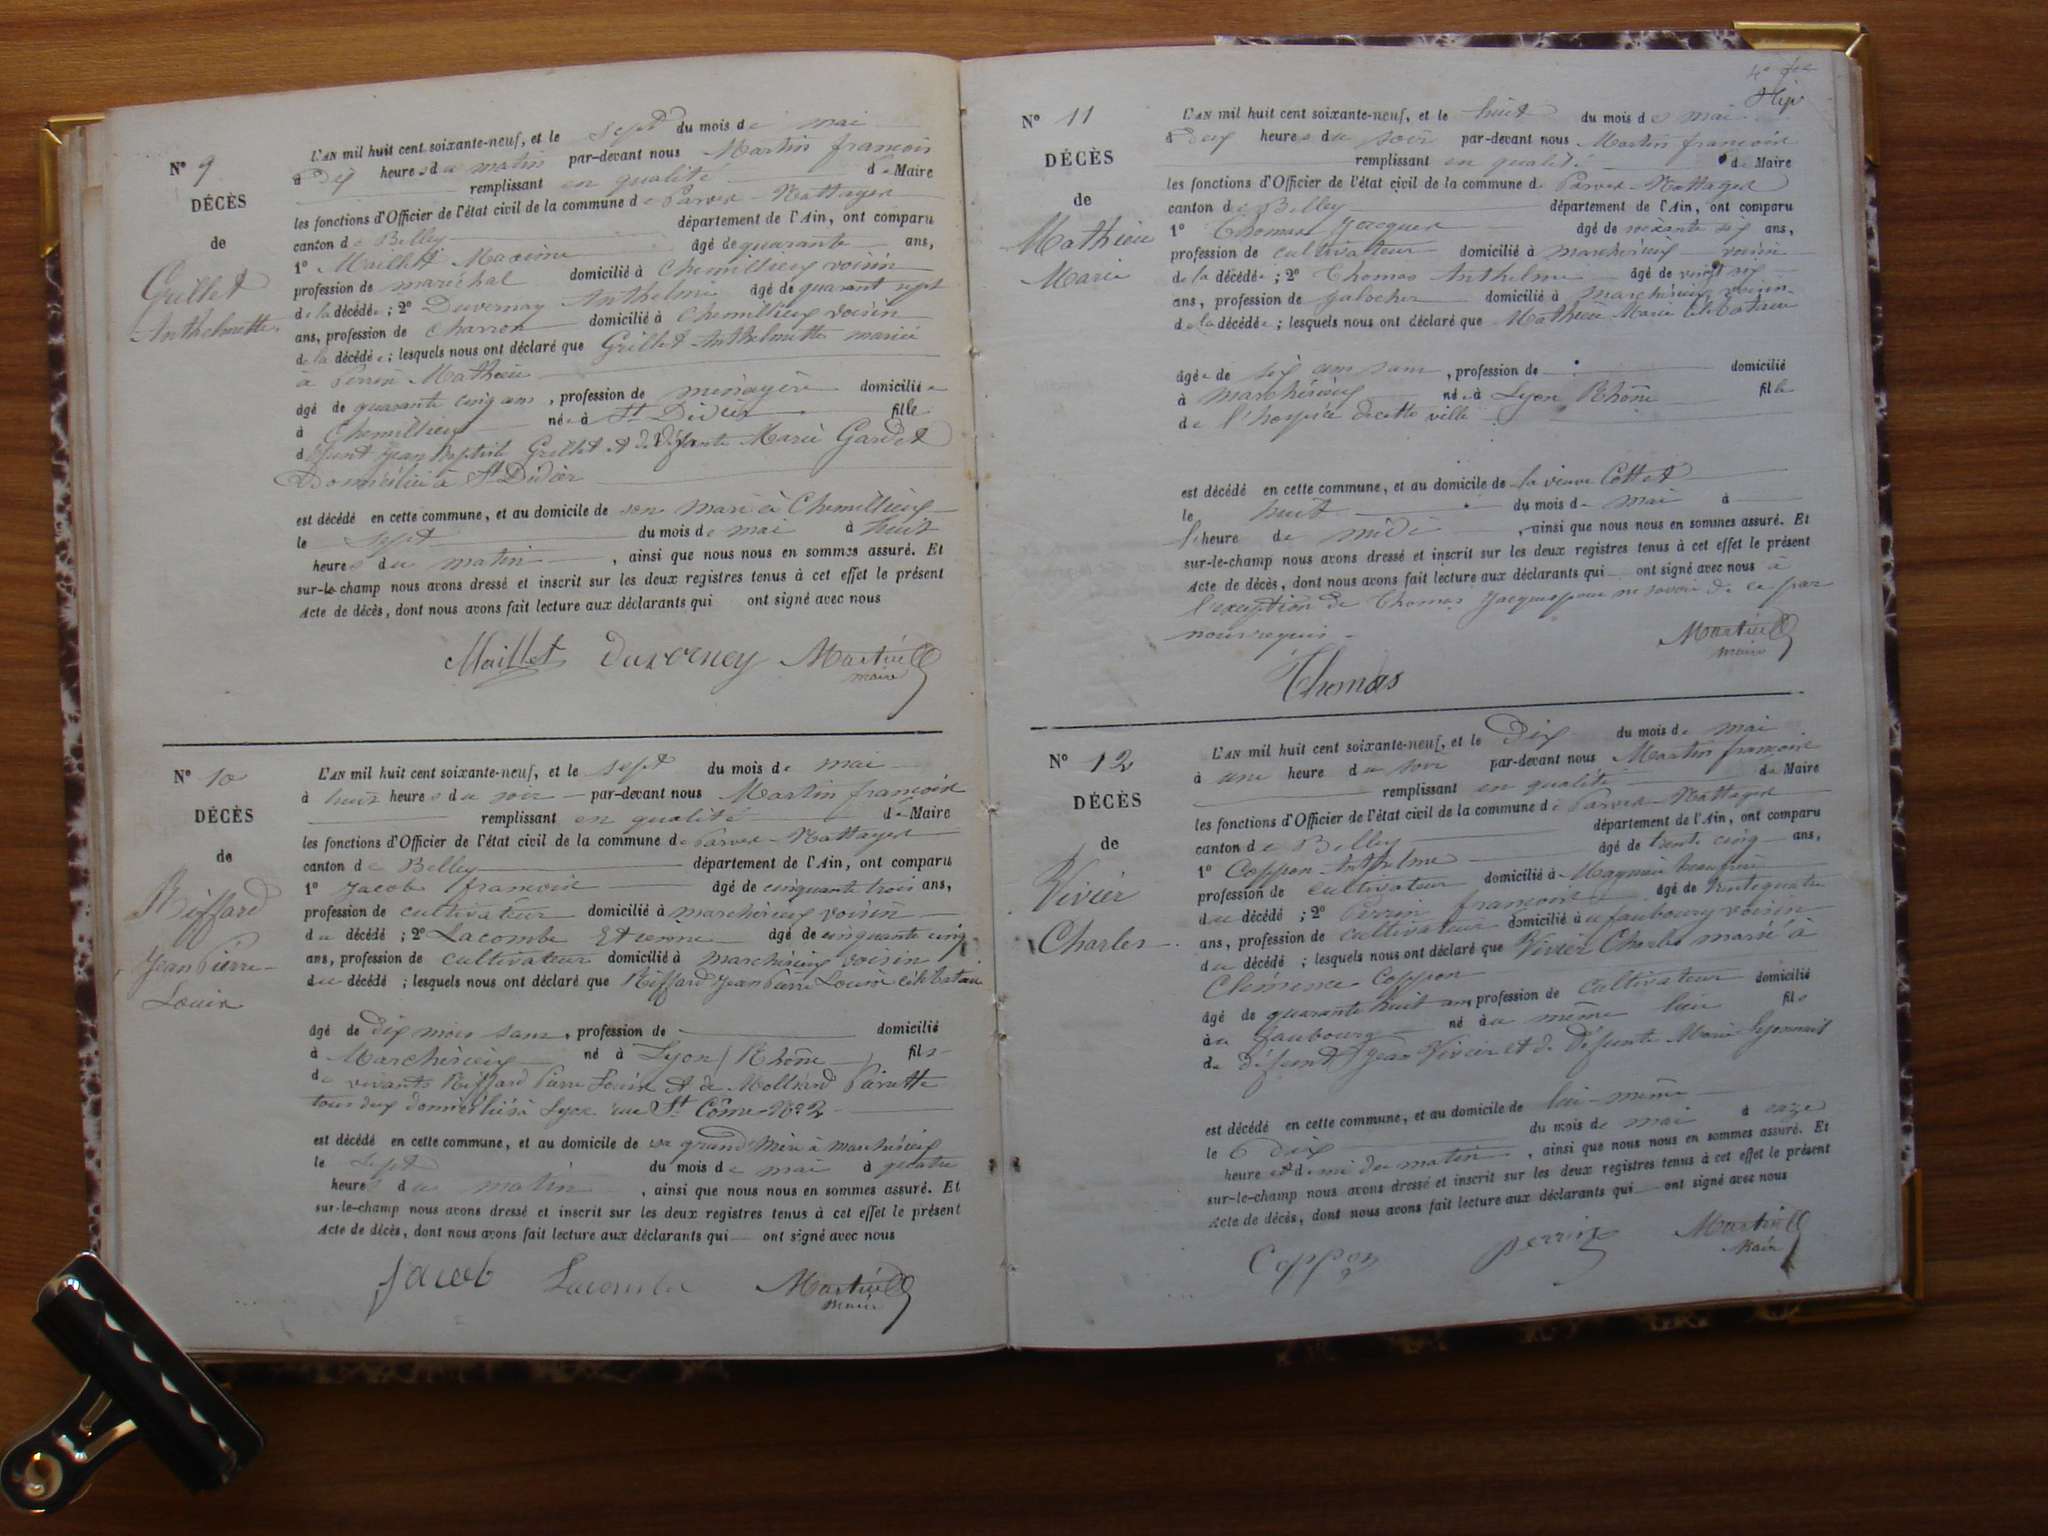 N° 9
DÉCÈS
de
Grillet
Anthelmette
L'AN mil huit cent soixante-neuf, et le sept du mois de mai
à dix heures du matin par-devant nous Martin françois
remplissant en qualité de Maire
les fonctions d'Officier de l'état civil de la commune de Parves-Nattages
canton de Belley département de l'Ain, ont comparu
1° Maillet Maxime âgé de quarante ans,
profession de maréchal domicilié à Chemillieux voisin
de la décédée ; 2° Duvernay Anthelme âgé de quarant sept
ans, profession de charron domicilié à Chemillieux voisin
de la décédée ; lesquels nous ont déclaré que Grillet Anthelmette mariée
à Mathieu
âgé de quarante cinq ans, profession de ménagère domiciliée
à Chemillieux née à St Didier fille
défunt Jean Baptiste Grillet et de défunte Marie Gardet
Domicilié à St Didier
est décédé en cette commune, et au domicile de son mari à Chemillieux
le sept du mois de mai à huit
heures du matin, ainsi que nous nous en sommes assuré. Et
sur-le-champ nous avons dressé et inscrit sur les deux registres tenus à cet effet le présent
Acte de décès, dont nous avons fait lecture aux déclarants qui ont signé avec nous
Maillet Duverney Martin
maire
N° 10
DÉCÈS
de
Riffard
Jean Pierre
Louis
L'AN mil huit cent soixante-neuf, et le sept du mois de mai
à huit heures du soir par-devant nous Martin françois
remplissant en qualité de Maire
les fonctions d'Officier de l'état civil de la commune de Parves-Nattages
canton de Belley département de l'Ain, ont comparu
1° Jacob françois âgé de cinquante trois ans,
profession de cultivateur domicilié à marchérieux voisin
du décédé ; 2° Lacombe Etienne âgé de cinquante cinq
ans, profession de cultivateur domicilié à marchérieux voisin
du décédé ; lesquels nous ont déclaré que Riffard Jean Pierre Louis célibatair
âgé de dix mois sans, profession de domicilié
à Marchérieux né à Lyon (Rhône) fils
de vivants Riffard Pierre Louis et de Mollard Pierrette
tous deux domiciliés à Lyon rue St Côme N° 2
est décédé en cette commune, et au domicile de sa grand Mère à marchérieux
le sept du mois de mai à quatre
heures du matin, ainsi que nous nous en sommes assuré. Et
sur-le-champ nous avons dressé et inscrit sur les deux registres tenus à cet effet le présent
Acte de décès, dont nous avons fait lecture aux déclarants qui ont signé avec nous
Jacob Lacombe Martin
maire
N° 11
DÉCÈS
de
Mathieu
Marie
L'AN mil huit cent soixante-neuf, et le huit du mois de mai
à deux heures du soir par-devant nous Martin françois
remplissant en qualité de Maire
les fonctions d'Officier de l'état civil de la commune de Parves-Nattages
canton de Belley département de l'Ain, ont comparu
1° Thomas Jacques âgé de soixante six ans,
profession de cultivateur domicilié à marchérieux voisin
de la décédée ; 2° Thomas Anthelme âgé de vingt six
ans, profession de galocher domicilié à marchérieux voisin
de la décédée ; lesquels nous ont déclaré que Mathieu Marie Célibataire
âgée de six ans sans, profession de domicilié
à marchérieux née à Lyon Rhône fille
de l'hospice de cette ville
est décédé en cette commune, et au domicile de la veuve Cottet
le huit du mois de mai à
l'heure de midi, ainsi que nous nous en sommes assuré. Et
sur-le-champ nous avons dressé et inscrit sur les deux registres tenus à cet effet le présent
Acte de décès, dont nous avons fait lecture aux déclarants qui ont signé avec nous à
l'exception de Thomas Jacques pour ne savoir de ce par
nous requis
Martin
maire
Thomas
N° 12
DÉCÈS
de
Vivier
Charles
L'AN mil huit cent soixante-neuf, et le Dix du mois de mai
à une heure du soir par-devant nous Martin françois
remplissant en qualité de Maire
les fonctions d'Officier de l'état civil de la commune de Parves-Nattages
canton de Belley département de l'Ain, ont comparu
1° Coppon Anthelme âgé de trente cinq ans,
profession de cultivateur domicilié à beau frère
du décédé ; 2° Perrin françois âgé de trente quatre
ans, profession de cultivateur domicilié au faubourg voisin
du décédé ; lesquels nous ont déclaré que Vivier Charles marié à
Clémence Coppon
âgé de quarante huit ans, profession de cultivateur domicilié
au faubourg né au même lieu fils
de défunt Jean Vivier et de Défunte Marie
est décédé en cette commune, et au domicile de lui-même
le dix du mois de mai à onze
heure et demi du matin, ainsi que nous nous en sommes assuré. Et
sur-le-champ nous avons dressé et inscrit sur les deux registres tenus à cet effet le présent
Acte de décès, dont nous avons fait lecture aux déclarants qui ont signé avec nous
Coppon perrin Martin
Maire